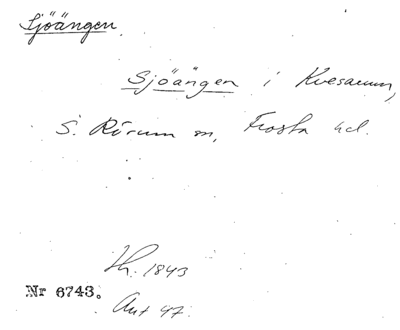 Sjöängen.
Sjöängen i Kvesarum,
S. Rörum sn, Frosta hd.
Th. 1843
Nr 6743.
Ant 47.